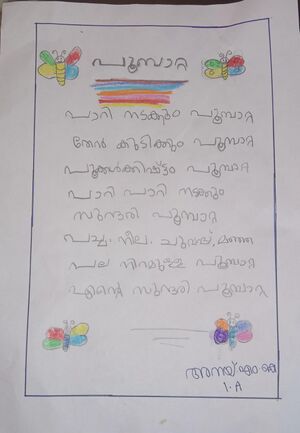 പൂമ്പാറ്റ
പാറി നടക്കും പൂമ്പാറ്റ
തേൻ കുടിക്കും പൂമ്പാറ്റ
പൂക്കൾക്കിഷ്ട്ടം പൂമ്പാറ്റ
പാറി പാറി നടക്കും
സുന്ദരി പൂമ്പാറ്റ
പച്ച, നീല, ചുവപ്പ്, മഞ്ഞ
പല നിറമുള്ള പൂമ്പാറ്റ
എന്റെ സുന്ദരി പൂമ്പാറ്റ
അനയ് എം.കെ
1.A